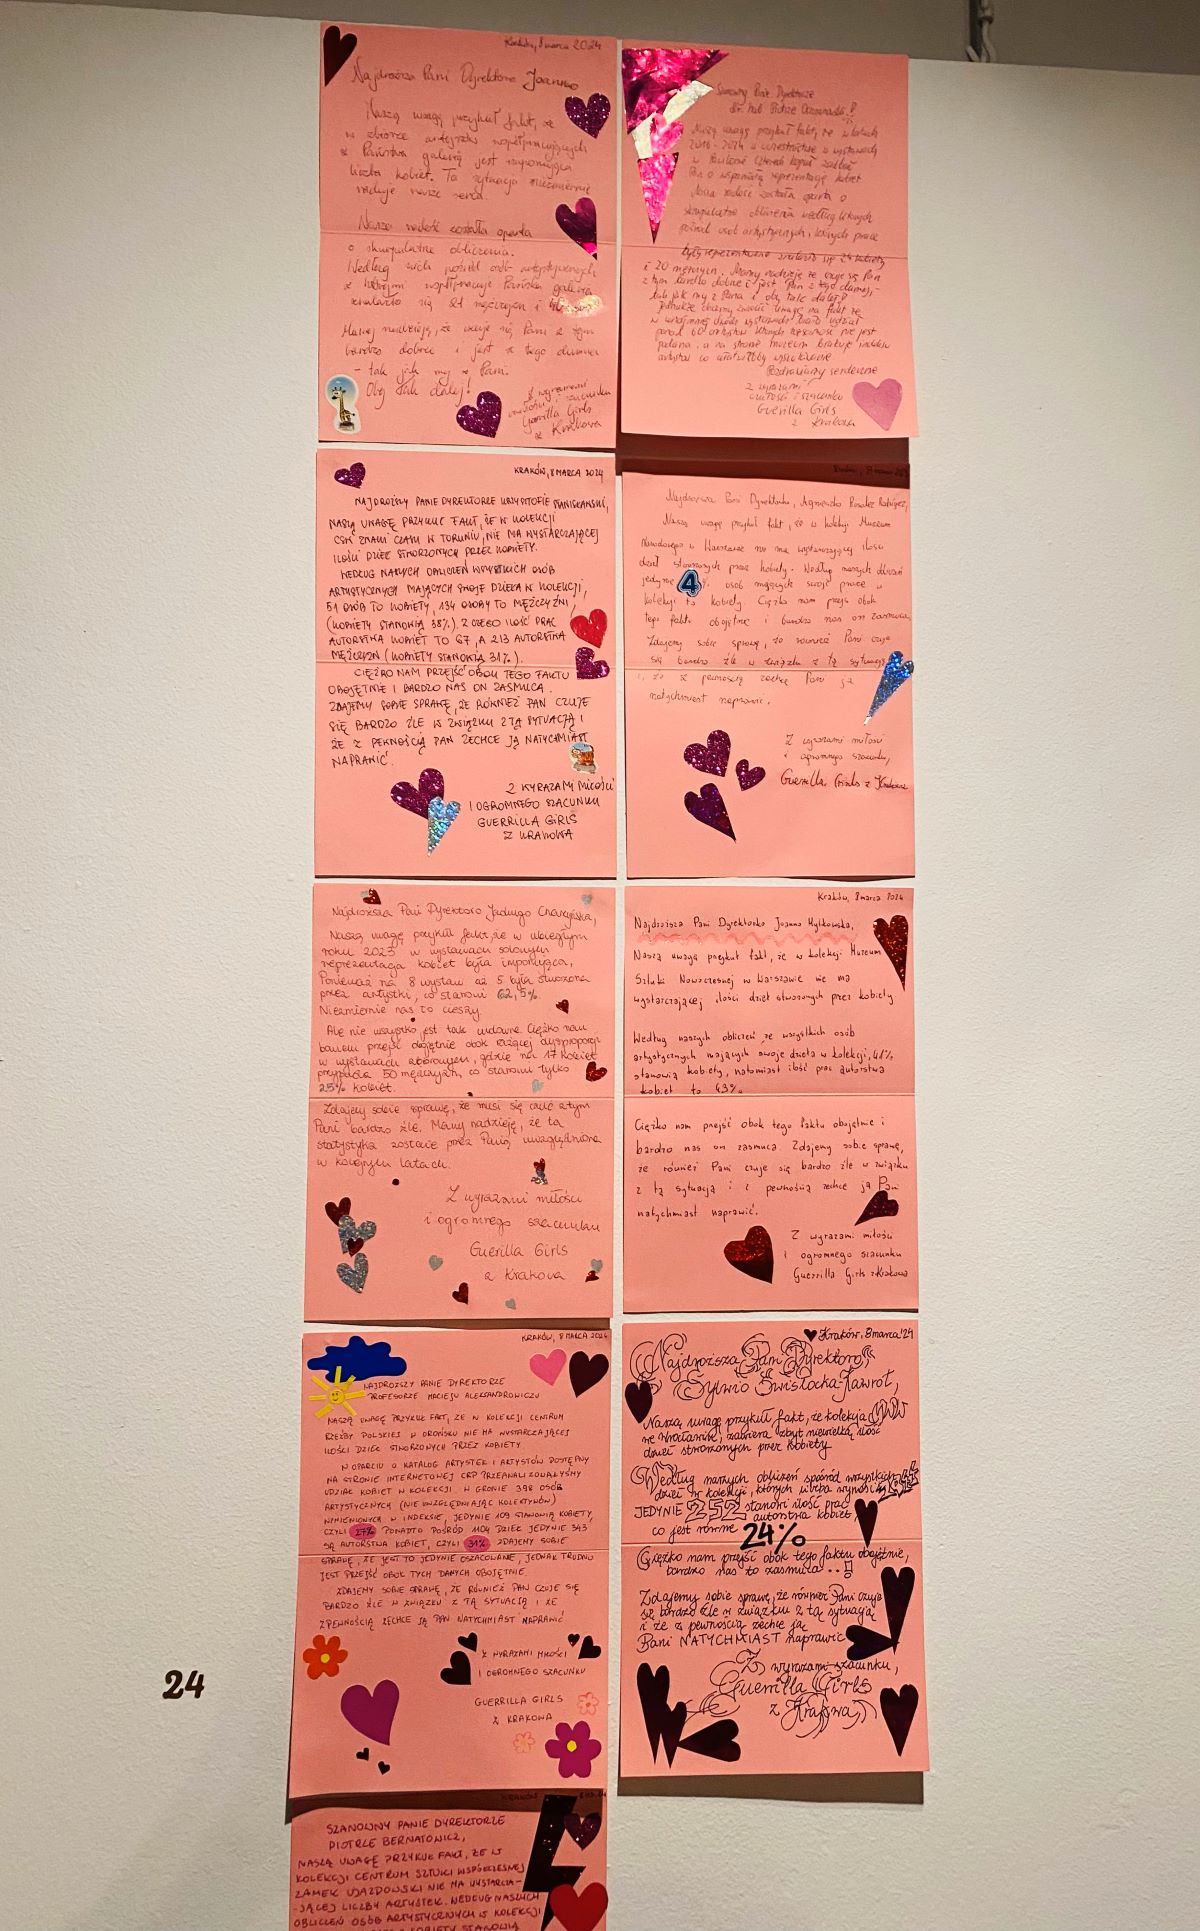 Kraków, 8 marca 2024
Najdroższa Pani Dyrektorko Joanno
Naszą uwagę przykuł fakt, że
w zbiorze artystów współpracujących
z Państwa galerią jest imponująca
liczba kobiet. Ta sytuacja niezmiernie
raduje nasze serca.
Nasza radość została oparta
o skrupulatne obliczenia.
Według nich pośród osób artystycznych
z którymi współpracuje Pańska galeria
znalazło się 21 mężczyzn i
Mamy nadzieję, że czuje się Pani z tym
bardzo dobrze i jest z tego dumna
- tak jak my z Pani.
Oby tak dalej!
Z wyrazami
miłości i szacunku
Guerilla Girls
z Krakowa
Szanowny Panie Dyrektorze
dr. hab. Piotrze
Naszą uwagę przykuł fakt, że w latach
2016-2024 uczestnictwo w wystawach
w Pawilonie Czterech Kopuł zadbał
Pan o wspaniałą reprezentację kobiet
Nasza radość została oparta o
skrupulatne obliczenia według których
pośród osób artystycznych, których prace
były reprezentowane znalazło się 24 kobiety
i 20 mężczyzn. Mamy nadzieję że czuje się Pan
z tym bardzo dobrze i jest Pan z tego dumny,-
tak jak my z Pana i oby tak dalej!
Jednakże chcemy zwrócić uwagę na fakt że
ponad 60 artystów których tożsamość nie jest
podana, a na stronie muzeum brakuje indeksu
artystów co ułatwiłoby wyszukiwanie
Pozdrawiamy serdecznie
z wyrazami
czułości i szacunku
Guerilla Girls
z Krakowa
KRAKÓW, 8 MARCA 2024
NAJDROŻSZY PANIE DYREKTORZE KRZYSZTOFIE STANISŁAWSKI,
NASZĄ UWAGĘ PRZYKUŁ FAKT, ŻE W KOLEKCJI
CSW ZNAKI CZASU W TORUNIU, NIE MA WYSTARCZAJĄCEJ
ILOŚCI DZIEŁ STWORZONYCH PRZEZ KOBIETY.
WEDŁUG NASZYCH OBLICZEŃ WSZYSTKICH OSÓB
ARTYSTYCZNYCH MAJĄCYCH SWOJE DZIEŁA W KOLEKCJI,
51 OSÓB TO KOBIETY, 134 OSOBY TO MĘŻCZYŹNI,
(KOBIETY STANOWIĄ 38%). Z CZEGO ILOŚĆ PRAC
AUTORSTWA KOBIET TO 67, A 213 AUTORSTWA
MĘŻCZYZN (KOBIETY STANOWIĄ 31%).
CIĘŻKO NAM PRZEJŚĆ OBOK TEGO FAKTU
OBOJĘTNIE I BARDZO NAS ON ZASMUCA.
ZDAJEMY SOBIE SPRAWĘ, ŻE RÓWNIEŻ PAN CZUJE
SIĘ BARDZO ŹLE W ZWIĄZKU Z TĄ SYTUACJĄ I
ŻE Z PEWNOŚCIĄ PAN ZECHCE JĄ NATYCHMIAST
NAPRAWIĆ.
Z WYRAZAMI MIŁOŚCI
I OGROMNEGO SZACUNKU
GUERRILLA GIRLS
Z KRAKOWA
Najdroższa Pani Dyrektorko, Agnieszko
Naszą uwagę przykuł fakt, że w kolekcji Muzeum
Narodowego w Warszawie nie ma wystarczającej ilości
dzieł stworzonych przez kobiety. Według naszych obliczeń
jedynie 4% osób mających swoje prace w
kolekcji to kobiety. Ciężko nam przejść obok
tego faktu obojętnie i bardzo nas on zasmuca.
Zdajemy sobie sprawę, że również Pani czuje
się bardzo źle w związku z tą sytuacją
i, że z pewnością zechce Pani ją
natychmiast naprawić.
Z wyrazami miłości
i ogromnego szacunku,
Guerrilla Girls z Krakowa
Najdroższa Pani Dyrektoro Jadwigo Charzyńska,
Naszą uwagę przykuł fakt, że w ubiegłym
roku 2023 w wystawach solowych
reprezentacja kobiet była imponująca,
Ponieważ na 8 wystaw aż 5 było stworzona
przez artystki, co stanowi 62,5%.
Niezmiernie nas to cieszy.
Ale nie wszystko jest tak cudowne. Ciężko nam
bowiem przejść obojętnie obok rażącej dysproporcji
w wystawach zbiorowych, gdzie na 17 kobiet
przypada 50 mężczyzn, co stanowi tylko
25% kobiet.
Zdajemy sobie sprawę, że musi się czuć z tym
Pani bardzo źle. Mamy nadzieję, że ta
statystyka zostanie przez Panią uwzględniona
w kolejnych latach.
Z wyrazami miłości
i ogromnego szacunku
Guerilla Girls
z Krakowa
Kraków, 8 marca 2024
Najdroższa Pani Dyrektorko Joanno Mytkowska,
Naszą uwagę przykuł fakt, że w kolekcji Muzeum
Sztuki Nowoczesnej w Warszawie nie ma
wystarczającej ilości dzieł stworzonych przez kobiety
Według naszych obliczeń ze wszystkich osób
artystycznych mających swoje dzieła w kolekcji, 41%
stanowią kobiety, natomiast ilość prac autorstwa
kobiet to 43%.
Ciężko nam przejść obok tego faktu obojętnie i
bardzo nas on zasmuca. Zdajemy sobie sprawę,
że również Pani czuje się bardzo źle w związku
z tą sytuacją i z pewnością zechce ją Pani
natychmiast naprawić.
Z wyrazami miłości
i ogromnego szacunku
Guerrilla Girls z Krakowa
KRAKÓW, 8 MARCA 2024
NAJDROŻSZY PANIE DYREKTORZE
PROFESORZE MACIEJU ALEKSANDROWICZU
NASZĄ UWAGĘ PRZYKUŁ FAKT, ŻE W KOLEKCJI CENTRUM
RZEŹBY POLSKIEJ W OROŃSKU NIE MA WYSTARCZAJĄCEJ
ILOŚCI DZIEŁ STWORZONYCH PRZEZ KOBIETY
W OPARCIU O KATALOG ARTYSTEK I ARTYSTÓW DOSTĘPNY
NA STRONIE INTERNETOWEJ CRP PRZEANALIZOWAŁYŚMY
UDZIAŁ KOBIET W KOLEKCJI. W GRONIE 398 OSÓB
ARTYSTYCZNYCH (NIE UWZGLĘDNIAJĄC KOLEKTYWÓW)
WYMIENIONYCH W INDEKSIE, JEDYNIE 109 STANOWIĄ KOBIETY,
CZYLI 27% PONADTO POŚRÓD 1104 DZIEŁ JEDYNIE 343
SĄ AUTORSTWA KOBIET, CZYLI 31% ZDAJEMY SOBIE
SPRAWĘ, ŻE JEST TO JEDYNIE OSZACOWANE, JEDNAK TRUDNO
JEST PRZEJŚĆ OBOK TYCH DANYCH OBOJĘTNIE.
ZDAJEMY SOBIE SPRAWĘ, ŻE RÓWNIEŻ PAN CZUJE SIĘ
BARDZO ŹLE W ZWIĄZKU Z TĄ SYTUACJĄ I ŻE
Z PEWNOŚCIĄ ZECHCE JĄ PAN NATYCHMIAST NAPRAWIĆ
Z WYRAZAMI MIŁOŚCI
I OGROMNEGO SZACUNKU
GUERRILLA GIRLS
Z KRAKOWA
Kraków, 8 marca '24
Najdroższa Pani Dyrektoro
Sylwio Świsłocka-Karwot,
Naszą uwagę przykuł fakt, że kolekcja MWW
we Wrocławiu, zawiera zbyt niewielką ilość
dzieł stworzonych przez kobiety
Według naszych obliczeń spośród wszystkich
dzieł w kolekcji, których liczba wynosi
JEDYNIE 252 stanowi ilość prac
autorstwa kobiet,
co jest równe 24%
Ciężko nam przejść obok tego faktu obojętnie,
bardzo nas to zasmuca...!
Zdajemy sobie sprawę, że również Pani czuje
się bardzo źle w związku z tą sytuacją
i że z pewnością zechce ją
Pani NATYCHMIAST naprawić
Z wyrazami szacunku,
Guerrilla Girls
z Krakowa
24
KRAKÓW
SZANOWNY PANIE DYREKTORZE
PIOTRZE BERNATOWICZ,
NASZĄ UWAGĘ PRZYKUŁ FAKT, ŻE W
KOLEKCJI CENTRUM SZTUKI WSPÓŁCZESNEJ
ZAMEK UJAZDOWSKI NIE MA WYSTARCZA-
-JĄCEJ LICZBY ARTYSTEK. WEDŁUG NASZYCH
OBLICZEŃ OSÓB ARTYSTYCZNYCH W KOLEKCJI
KOBIETY STANOWIĄ